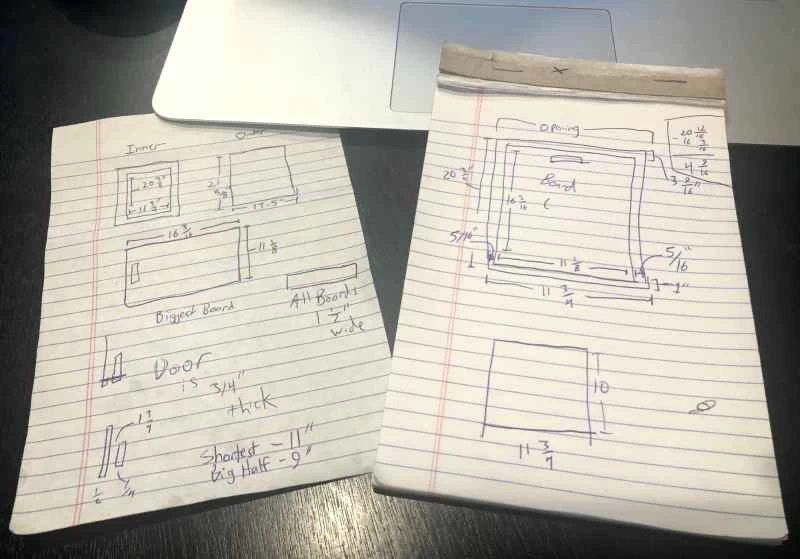 Inner
Outer
20 3/4"
11 3/4"
21
17.5"
16 3/16
11 1/8
Biggest Board
All Boards
1 1/2"
wide
Door
is 3/4"
thick
Shortest - 11"
Big Half - 9"
Opening
20 12/16
- 16 3/16
20 3/4"
Board
16 3/16
5/16"
11 1/8
5/16"
1"
11 3/4
10